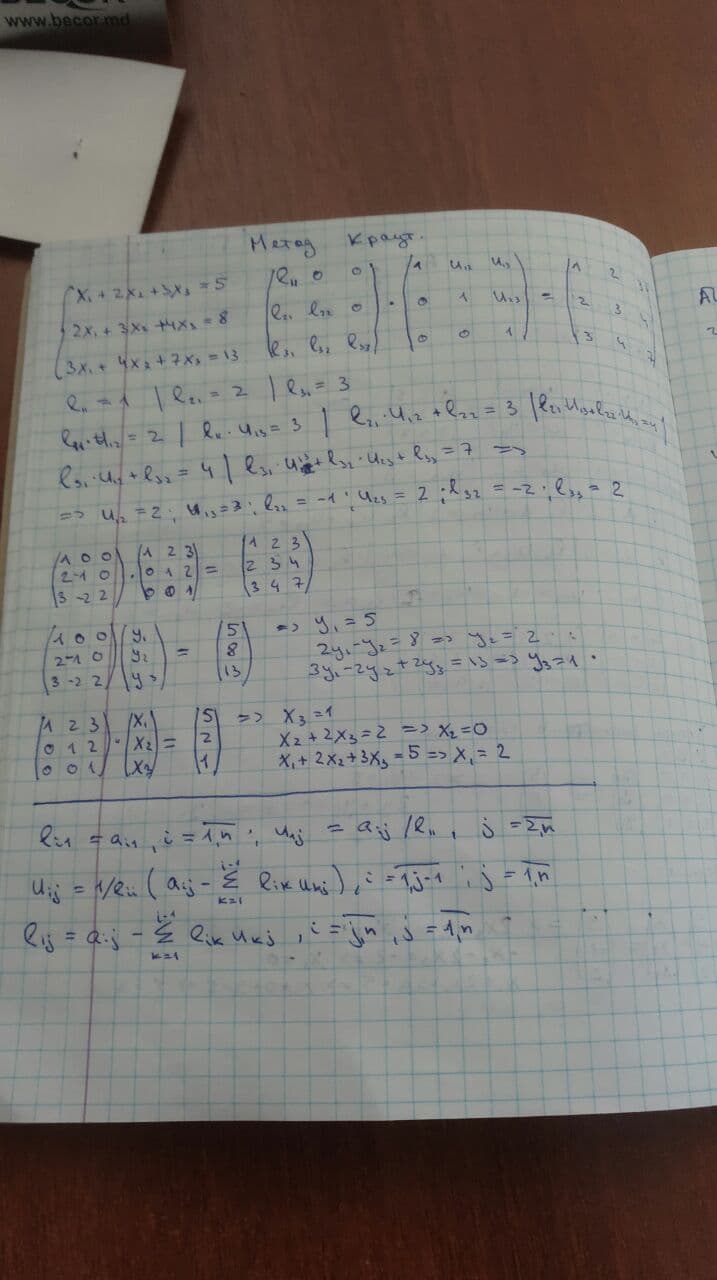 BECOR
www.becor.md
Метод Краут.
x₁ + 2x₂ + 3x₃ = 5
2x₁ + 3x₂ + 4x₃ = 8
3x₁ + 4x₂ + 7x₃ = 13
(l₁₁ 0 0; l₂₁ l₂₂ 0; l₃₁ l₃₂ l₃₃) · (1 u₁₂ u₁₃; 0 1 u₂₃; 0 0 1) = (1 2 3; 2 3 4; 3 4 7)
l₁₁ = 1 | l₂₁ = 2 | l₃₁ = 3
l₁₁·u₁₂ = 2 | l₁₁·u₁₃ = 3 | l₂₁·u₁₂ + l₂₂ = 3 | l₂₁·u₁₃ + l₂₂·u₂₃ = 4 |
l₃₁·u₁₂ + l₃₂ = 4 | l₃₁·u₁₃ + l₃₂·u₂₃ + l₃₃ = 7 =>
=> u₁₂ = 2; u₁₃ = 3; l₂₂ = -1; u₂₃ = 2; l₃₂ = -2; l₃₃ = 2
(1 0 0; 2 -1 0; 3 -2 2) · (1 2 3; 0 1 2; 0 0 1) = (1 2 3; 2 3 4; 3 4 7)
(1 0 0; 2 -1 0; 3 -2 2) (y₁; y₂; y₃) = (5; 8; 13) => y₁ = 5
2y₁ - y₂ = 8 => y₂ = 2
3y₁ - 2y₂ + 2y₃ = 13 => y₃ = 1
(1 2 3; 0 1 2; 0 0 1) · (x₁; x₂; x₃) = (5; 2; 1) => x₃ = 1
x₂ + 2x₃ = 2 => x₂ = 0
x₁ + 2x₂ + 3x₃ = 5 => x₁ = 2
lᵢ₁ = aᵢ₁, i = 1,n; u₁ⱼ = aᵢⱼ / l₁₁, j = 2,n
uᵢⱼ = 1/lᵢᵢ (aᵢⱼ - Σ_{k=1}^{i-1} lᵢₖ uₖⱼ), i = 1,j-1; j = 1,n
lᵢⱼ = aᵢⱼ - Σ_{k=1}^{i-1} lᵢₖ uₖⱼ, i = j,n, j = 1,n